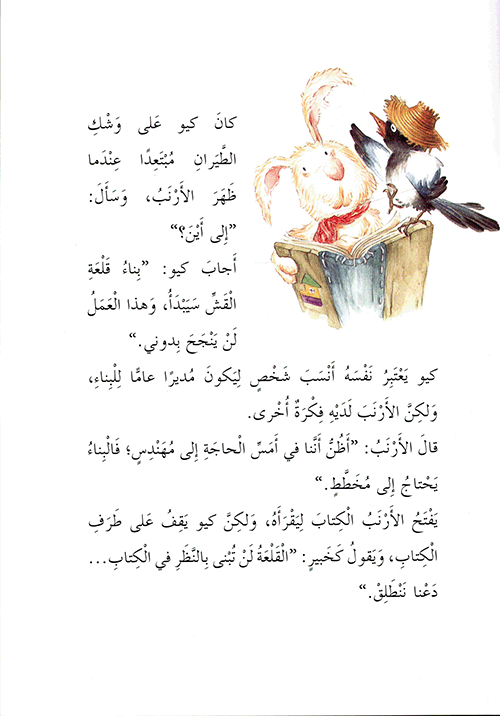 كانَ كيو عَلى وَشْكِ
الطَّيَرانِ مُبْتَعِدًا عِنْدَما
ظَهَرَ الأَرْنَبُ، وَسَأَلَ:
”إِلى أَيْنَ؟“
أَجابَ كيو: ”بِناءُ قَلْعَةِ
الْقَشِّ سَيَبْدَأُ، وَهذا الْعَمَلُ
لَنْ يَنْجَحَ بِدوني.“
كيو يَعْتَبِرُ نَفْسَهُ أَنْسَبَ شَخْصٍ لِيَكونَ مُديرًا عامًّا لِلْبِناءِ،
وَلكِنَّ الأَرْنَبَ لَدَيْهِ فِكْرَةٌ أُخْرى.
قالَ الأَرْنَبُ: ”أَظُنُّ أَنَّنا في أَمَسِّ الْحاجَةِ إِلى مُهَنْدِسٍ؛ فَالْبِناءُ
يَحْتاجُ إِلى مُخَطَّطٍ.“
يَفْتَحُ الأَرْنَبُ الْكِتابَ لِيَقْرَأَهُ، وَلكِنَّ كيو يَقِفُ عَلى طَرَفِ
الْكِتابِ، وَيَقولُ كَخَبيرٍ: ”الْقَلْعَةُ لَنْ تُبْنى بِالنَّظَرِ في الْكِتابِ...
دَعْنا نَنْطَلِقْ.“